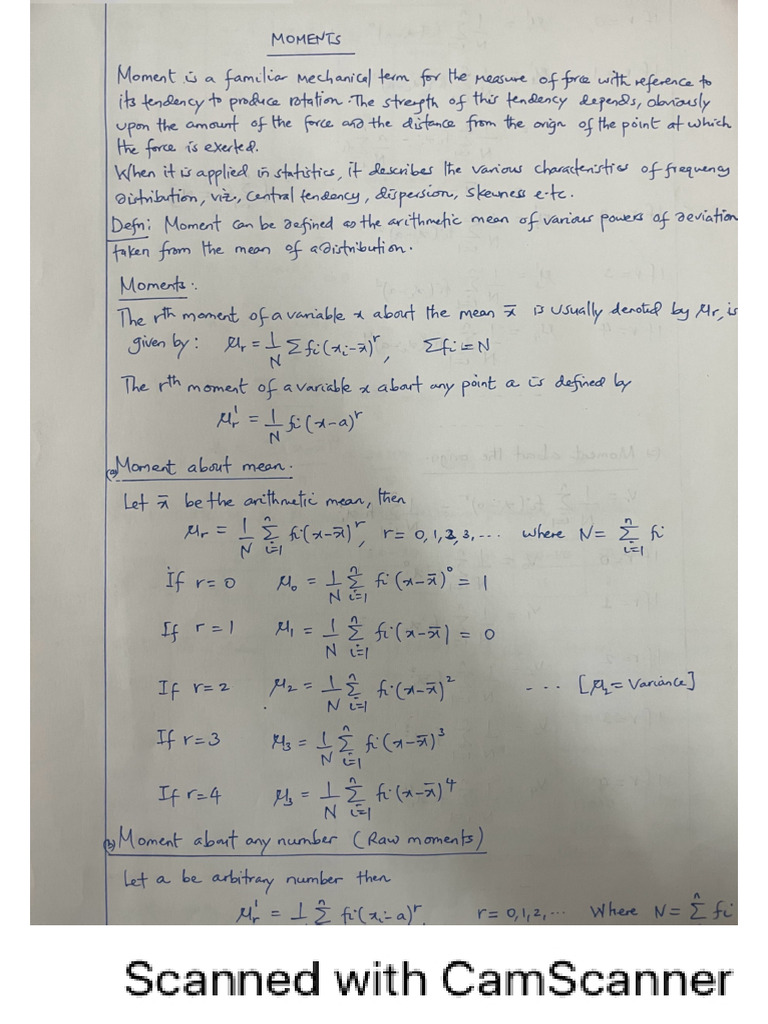 MOMENTS
Moment is a familiar mechanical term for the measure of force with reference to
its tendency to produce rotation. The strength of this tendency depends, obviously
upon the amount of the force and the distance from the origin of the point at which
the force is exerted.
When it is applied in statistics, it describes the various characteristics of frequency
distribution, viz., central tendency, dispersion, skewness e.tc.
Defn: Moment can be defined as the arithmetic mean of various powers of deviation
taken from the mean of a distribution.
Moments:.
The rth moment of a variable x about the mean x̄ is usually denoted by μr, is
given by: μr = 1/N Σfi(xi-x̄)^r, Σfi = N
The rth moment of a variable x about any point a is defined by
μr' = 1/N fi(x-a)^r
(a) Moment about mean.
Let x̄ be the arithmetic mean, then
μr = 1/N Σ_{i=1}^{n} fi(x-x̄)^r, r = 0,1,2,3,... where N = Σ_{i=1}^{n} fi
If r=0 μ0 = 1/N Σ_{i=1}^{n} fi(x-x̄)^0 = 1
If r=1 μ1 = 1/N Σ_{i=1}^{n} fi(x-x̄) = 0
If r=2 μ2 = 1/N Σ_{i=1}^{n} fi(x-x̄)^2 ... [μ2 = Variance]
If r=3 μ3 = 1/N Σ_{i=1}^{n} fi(x-x̄)^3
If r=4 μ3 = 1/N Σ_{i=1}^{n} fi(x-x̄)^4
(b) Moment about any number (Raw moments)
Let a be arbitrary number then
μr' = 1 Σ^{n} fi(xi-a)^r, r = 0,1,2,... Where N = Σ^{n} fi
Scanned with CamScanner